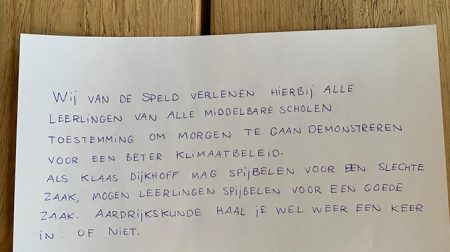 Wij van de Speld verlenen hierbij alle
leerlingen van alle middelbare scholen
toestemming om morgen te gaan demonstreren
voor een beter klimaatbeleid.
Als Klaas Dijkhoff mag spijbelen voor een slechte
zaak, mogen leerlingen spijbelen voor een goede
zaak. Aardrijkskunde haal je wel weer een keer
in. Of niet.